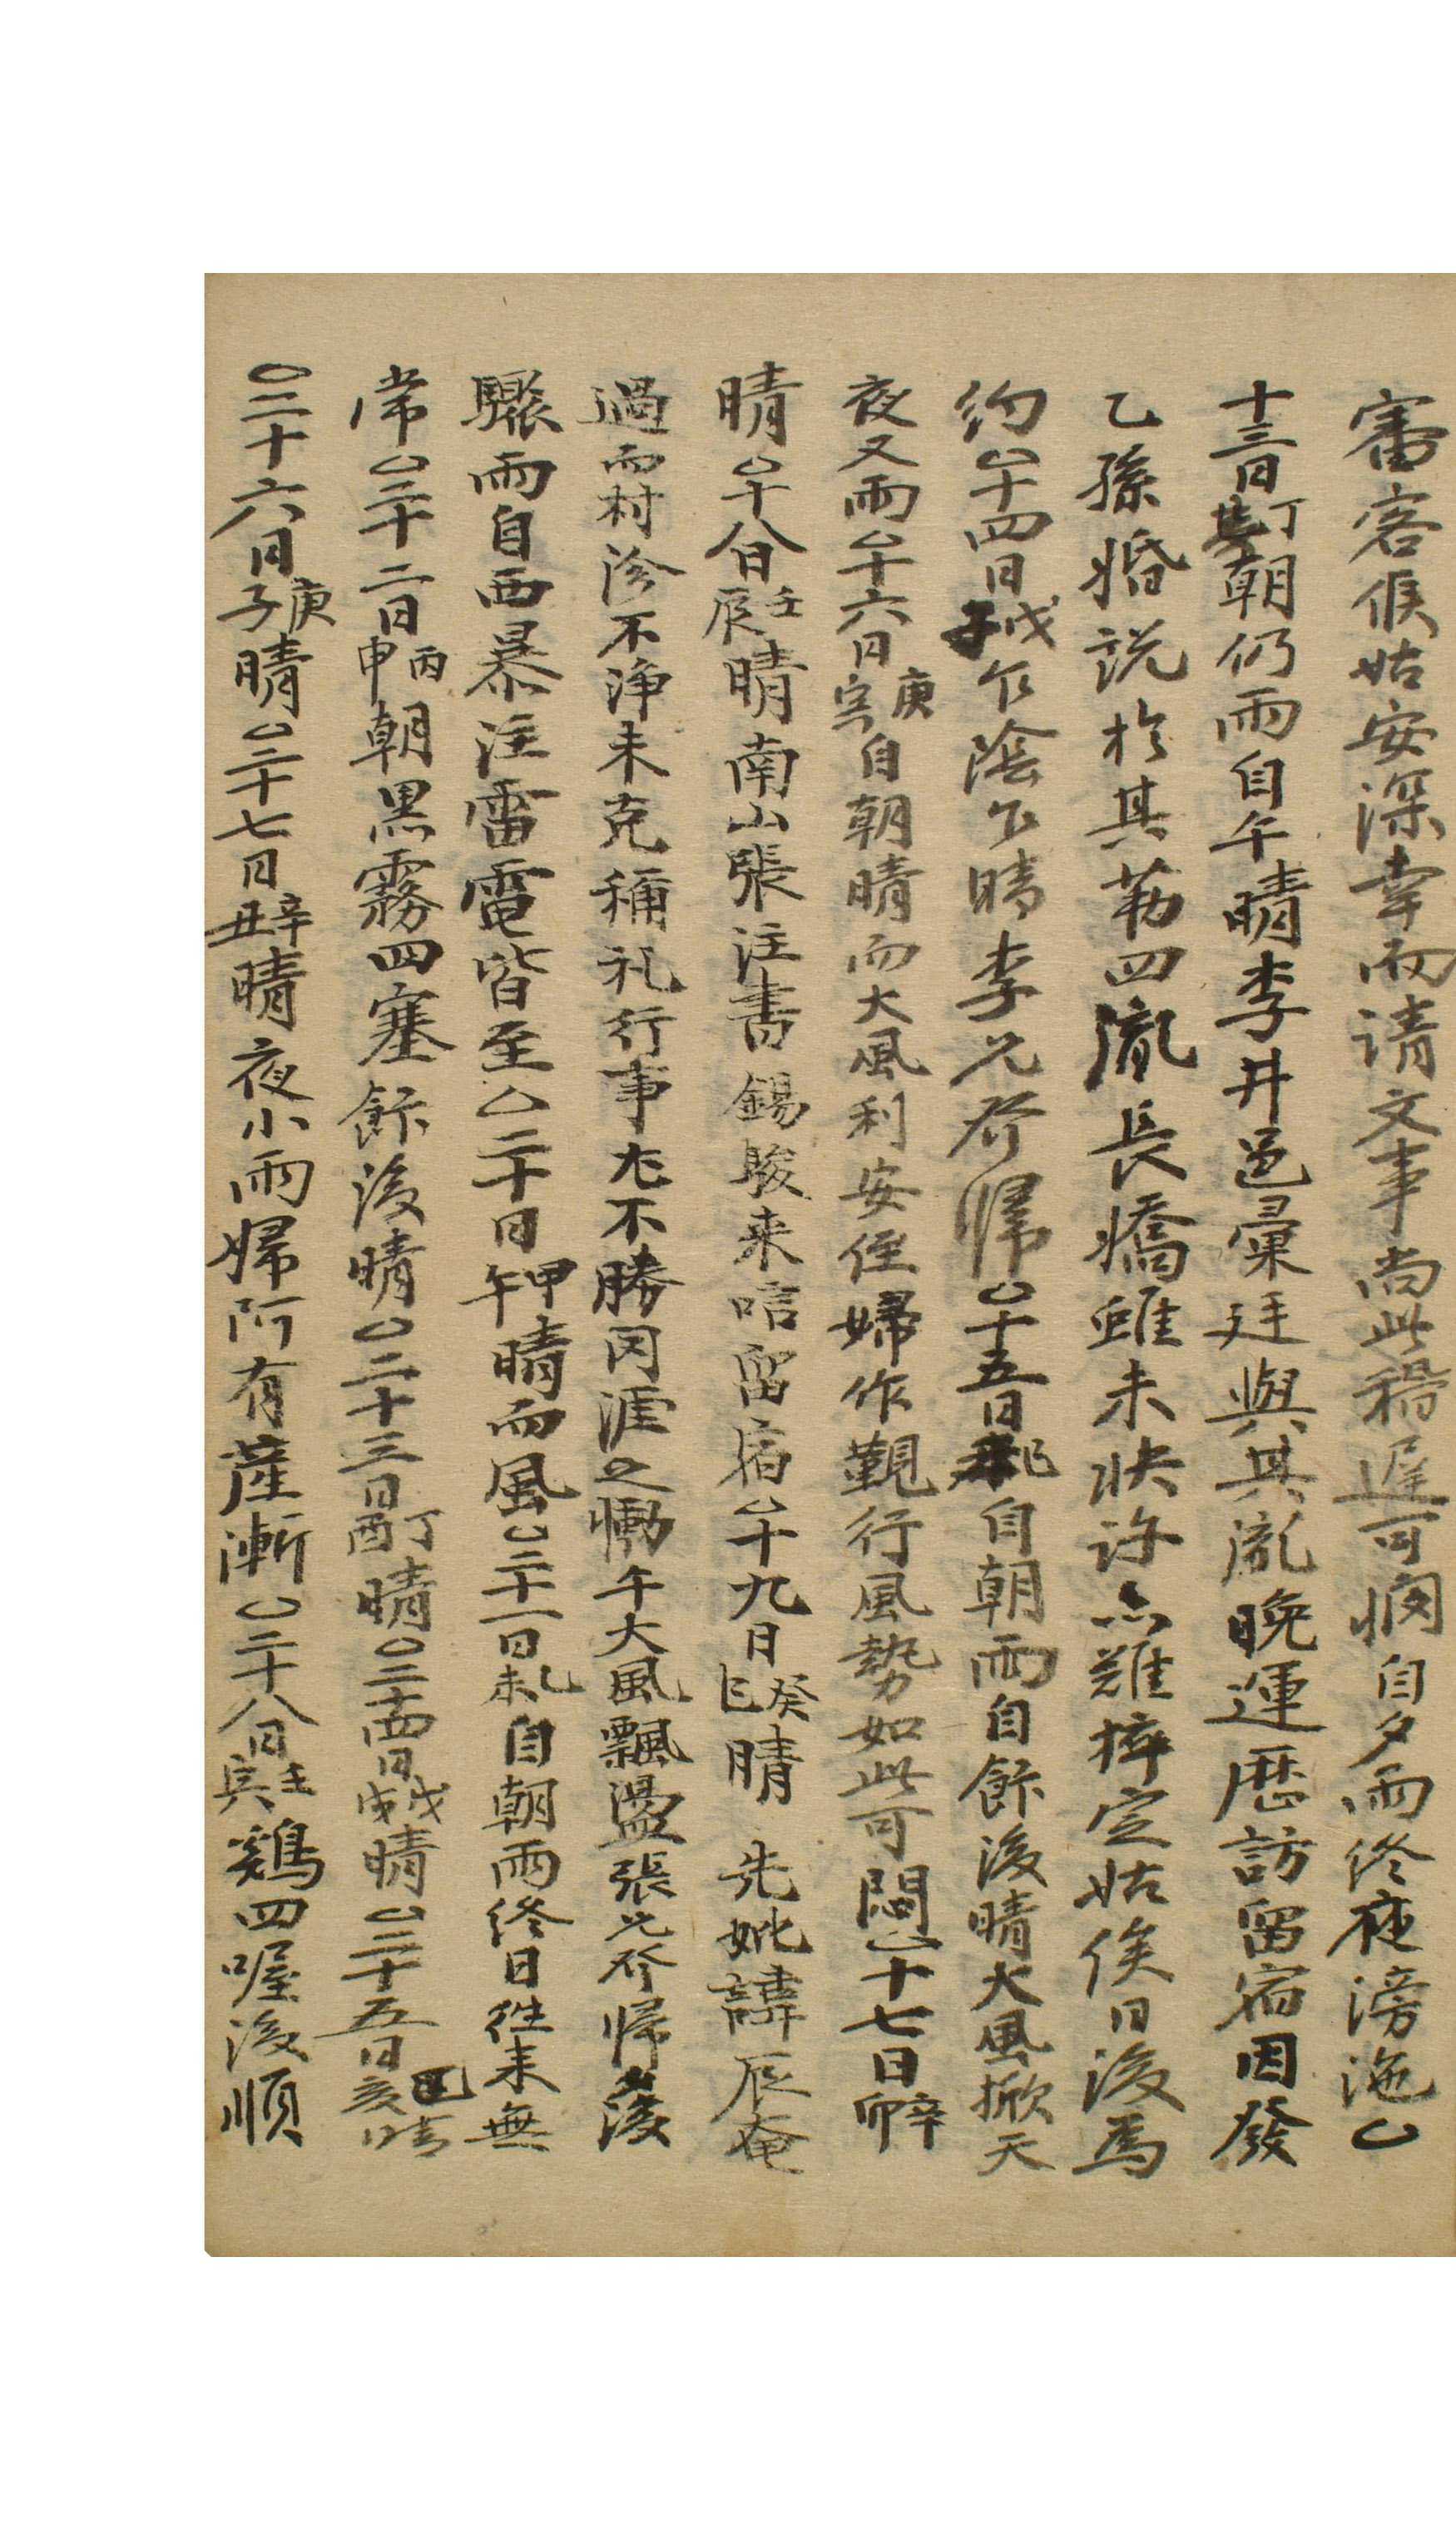 審客候姑安深幸而請文事尚此稽遲可憫自夕雨終夜滂沱○
十三日丁亥朝仍雨自午晴李井邑彙廷與其胤晩運歷訪留宿因發
乙孫婚說於其第四胤長矯雖未快許亦難捽定姑俟日後爲
約○十四日戊子乍陰乍晴李兄爷歸○十五日己丑自朝雨自飰後晴大風掀天
夜又雨○十六日庚寅自朝晴而大風利安侄婦作覲行風勢如此可悶○十七日辛卯
晴○十八日壬辰晴南山張注書錫駿来唁留宿○十九日癸巳晴 先妣諱辰奄
過而村沴不淨未克稱礼行事尤不勝罔涯之慟午大風飄盪張兄爷歸後
驟雨自西暴注雷電皆至○二十日甲午晴而風○二十一日乙未自朝雨終日往来無
常○二十二日丙申朝黑霧四塞飰後晴○二十三日丁酉晴○二十四日戊戌晴○二十五日己亥晴
○二十六日庚子晴○二十七日辛丑晴夜小雨婦阿有産漸○二十八日壬寅鷄四喔後順